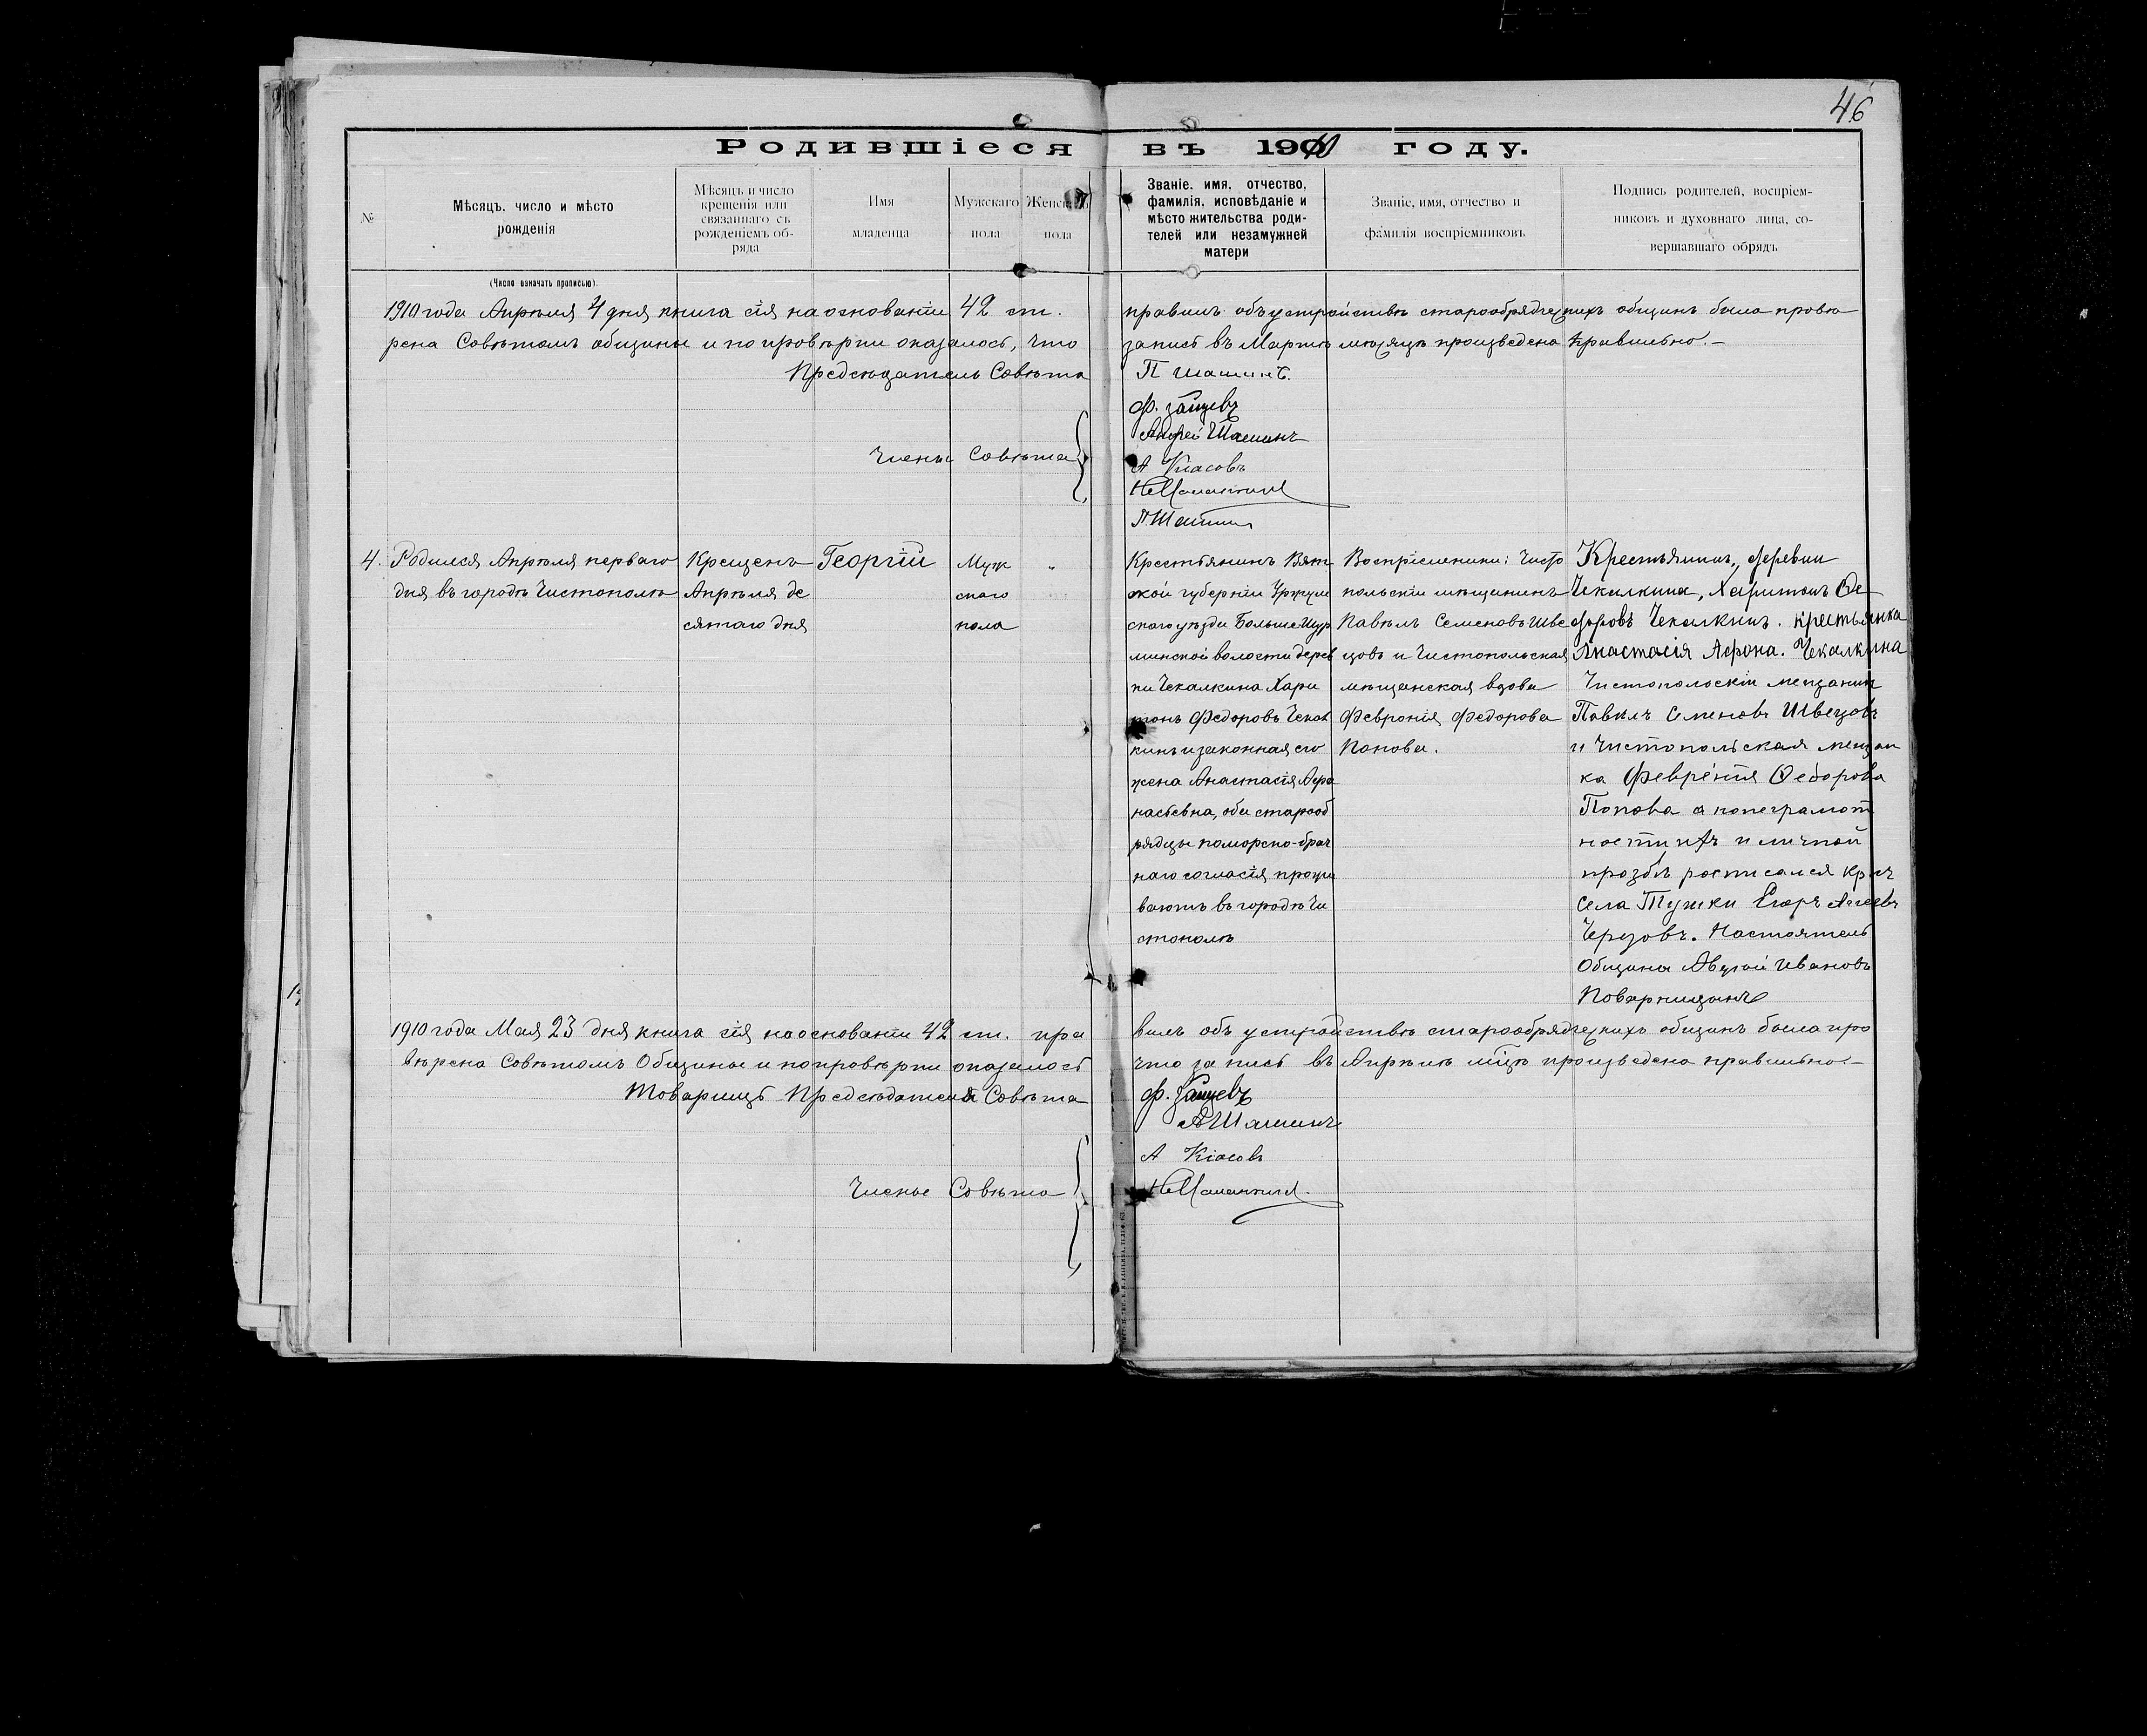 46
Родившіеся въ 1910 году.
№
Мѣсяцъ, число и мѣсто
рожденія
Мѣсяцъ и число
крещенія или
связаннаго съ
рожденіемъ об-
ряда
Имя
младенца
Мужскаго
пола
Женскаго
пола
Званіе, имя, отчество,
фамилія, исповѣданіе и
мѣсто жительства роди-
телей или незамужней
матери
Званіе, имя, отчество и
фамилія воспріемниковъ
Подпись родителей, воспріем-
никовъ и духовнаго лица, со-
вершавшаго обрядъ
(Число означать прописью)
1910 года Апрѣля 4 дня книга сія на основаніи 42 ст. правилъ объ устройствѣ старообрядческихъ общинъ была провѣ
рена Совѣтомъ общины и по провѣрки оказалось, что запись въ Мартѣ мѣсяцѣ произведена правильно.-
Предсѣдатель Совѣта П Шашинъ.
Ф. Зайцевъ
Андрей Шашинъ
Члены Совѣта
А Кіасовъ
П. Шашин
4.
Родился Апрѣля перваго
дня въ городѣ Чистополѣ
Крещенъ
Апрѣля де
сятаго дня
Георгій
Муж
скаго
пола
"
Крестьянинъ Вят
ской губерніи Уржум
скаго уѣзда Больше Шур
минской волости дерев
ни Чекалкина Хари
тонъ Федоровъ Чекал
кинъ и законная его
жена Анастасія Афа
насьевна, оба старооб
рядцы поморско-брач
наго согласія прожи
ваютъ въ городѣ Чи
стополѣ
Воспріемники: Чисто
польскій мѣщанинъ
Павелъ Семеновъ Шве
цовъ и Чистопольская
мѣщанская вдова
Феврония Федорова
Попова.
Крестьянинъ, деревни
Чекалкина, Харитонъ Ѳе
доровъ Чекалкинъ. крестьянка
Анастасія Афона. Чекалкина
Чистопольскій мещанин
Павелъ Семеновъ Швецовъ
и Чистопольская мещан
ка Февренія Ѳедорова
Попова а понеграмот
ности ихъ и личной
прозбѣ росписался крес
села Тушки Егоръ Агеевъ
Настоятель
Общины Ивановъ
1910 года Мая 23 дня книга сія на основаніи 42 ст. пра вилъ объ устройствѣ старообрядческихъ общинъ была про
вѣрена Совѣтомъ Общины и по провѣрки оказалось что запись въ Апрѣлѣ мѣцѣ произведена правильно.-
Товарищъ Предсѣдателя Совѣта Ф. Зайцевъ
А Шашинъ
А Кіасовъ
Члены Совѣта